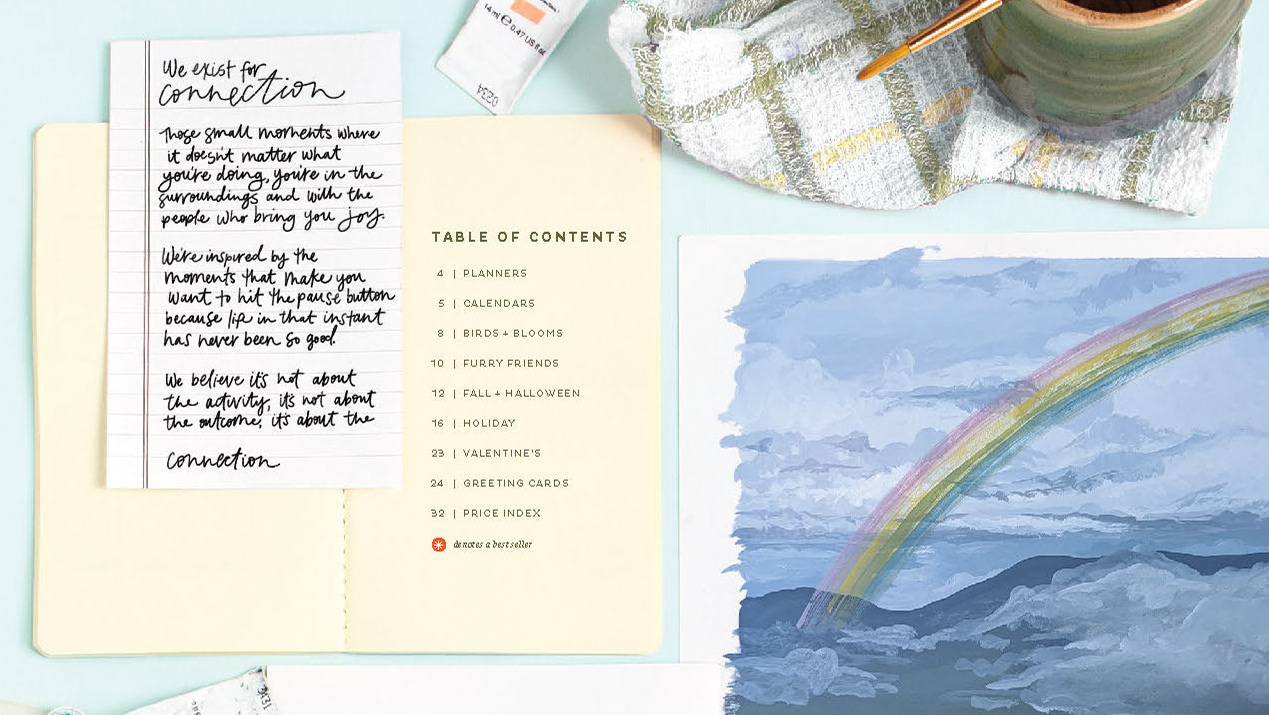 We exist for
connection
Those small moments where
it doesn't matter what
you're doing, you're in the
surroundings and with the
people who bring you joy.
We're inspired by the
moments that make you
want to hit the pause button
because life in that instant
has never been so good.
We believe it's not about
the activity, it's not about
the outcome, it's about the
connection
14 ml e 0.47 US fl oz
0234
TABLE OF CONTENTS
4 | PLANNERS
5 | CALENDARS
8 | BIRDS + BLOOMS
10 | FURRY FRIENDS
12 | FALL + HALLOWEEN
16 | HOLIDAY
23 | VALENTINE'S
24 | GREETING CARDS
32 | PRICE INDEX
denotes a best seller